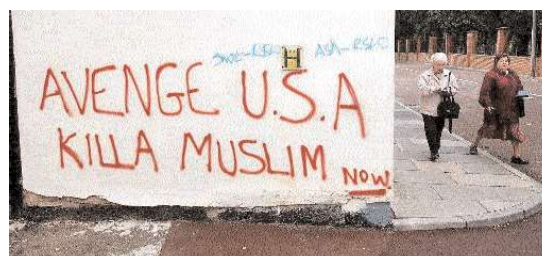 H
AVENGE U.S.A
KILLA MUSLIM NOW